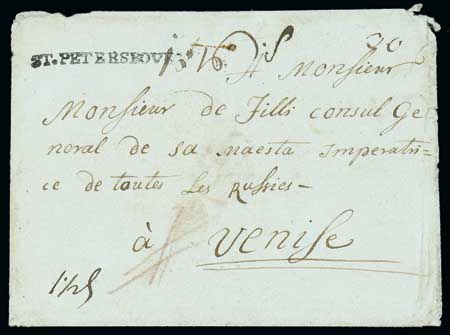 ST. PETERSBOURG
A Monsieur 70
Monsieur de Filli consul Ge
neral de sa Maesta Imperatri-
ce de toutes Les Russies-
à Venise